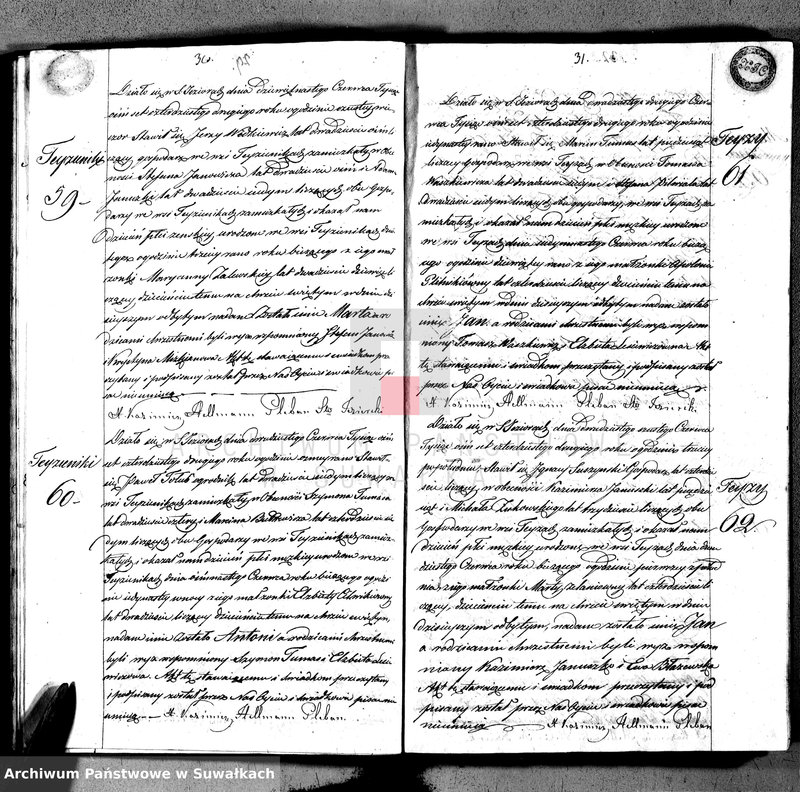 30.
Teyzeniki
59.
Działo się w S. Jeziorach dnia dziewiętnastego Czerwca Tysiąc
ośm set czterdziestego drugiego roku o godzinie szóstej wie
czor Stawił się Jerzy lat dwadzieścia ośm l
iczący gospodarz we wsi Teyzenikach zamieszkały w obec
ności Stefana Janowicza lat dwadzieścia ośm i Adam
Januszki lat dwadzieścia siedym liczących obu Gospo
darzy we wsi Teyzenikach zamieszkałych i okazał nam
dziecie płci żenskiey urodzone we wsi Teyzenikach dnia
o godzinie trzeciey rano roku bieżącego z jego mał
żonki Maryanny Zalewskiey lat dwadzieścia dziewięć li
czącey dziecięciu temu na chrzcie świętym w dniu dzi
sieyszym odbytym nadane zostało imie Marta a ro
dzicami chrzestnemi byli wyż wspomniony Stefan Janowicz
i Krystyna Akt ten stawaiącemu i świadkom prze
czytany i podpisany został przez Nas Oyciec i świadkowie pi
sać nieumieią
X Kazimierz Hellmann Pleban Sto Jeziorski
Teyzeniki
60.
Działo się w S. Jeziorach dnia dwudziestego Czerwca Tysiąc ośm
set czterdziestego drugiego roku o godzinie osmey rano Stawił
się Paweł Gołub ogrodnik lat dwadzieścia siedym liczący we
wsi Teyzenikach zamieszkały w Obecności Szymona Tumasa
lat dwadzieścia cztery i Marcina lat czterdzieści sie
dym liczących obu Gospodarzy we wsi Teyzenikach zamiesz
kałych i okazał nam dziecie płci męzkiey urodzone we wsi
Teyzenikach dnia ośmnastego Czerwca roku bieżącego o godzi
nie iedynastey w nocy z iego małżonki Elżbiety
lat dwadzieścia liczącey dziecięciu temu na chrzcie świętym
nadane imie zostało Antoni a rodzicami Chrzestnemi
byli wyż wspomniony Szymon Tumas i Elżbieta
Akt ten stawaiącemu i świadkom przeczytany
i podpisany został przez Nas Oyciec i świadkowie pisać nie
umieią X Kazimierz Hellmann Pleban
31.
Teyzy
61.
Działo się w S. Jeziorach dnia dwudziestego drugiego Czer
wca Tysiąc ośmset czterdziestego drugiego roku o godzinie
iedynastey rano Stawił się Marcin Tumas lat pięćdziesiąt
liczący Gospodarz we wsi Teyzach w Obecności Tomasza
Waszkiewicza lat dwadzieścia siedym i Stefana lat
dwadzieścia siedym liczących obu gospodarzy we wsi Teyzach za
mieszkałych i okazał nam dziecie płci męzkiey urodzone
we wsi Teyzach dnia Czerwca roku bieżą
cego o godzinie dziewiątey rano z iego małżonki Apolonii
lat czterdzieści liczącey dziecięciu temu na
chrzcie świętym w dniu dzisieyszym odbytym nadane zostało
imie Jan a rodzicami chrzestnemi byli wyż wspom
niony Tomasz Waszkiewicz i Elżbieta Ak
t ten stawaiącemu i świadkom przeczytany i podpisany został
przez Nas Oyciec i świadkowie pisać nieumieią
X Kazimierz Hellmann Pleban Sto Jeziorski
Teyzy
62.
Działo się w S. Jeziorach dnia dwudziestego szóstego Czerwca
Tysiąc ośm set czterdziestego drugiego roku o godzinie trzeciey
popołudniu Stawił się Ignacy Suszyński Gospodarz lat
liczący w obecności Kazimierza Januszki lat pięćdzie
siąt i Michała Żukowskiego lat trzydzieści liczących obu
Gospodarzy we wsi Teyzach zamieszkałych i okazał nam
dziecie płci męzkiey urodzone we wsi Teyzach dnia dwu
dziestego Czerwca roku bieżącego o godzinie pierwszey z połud
nia z iego małżonki Marty lat czterdzieści li
czącey, dziecięciu temu na chrzcie świętym w dniu
dzisieyszym odbytym, nadane zostało imie Jan
a rodzicami Chrzestnemi byli wyż wspom
niany Kazimierz Januszko i Ewa
Akt ten stawaiącemu i świadkom przeczytany i pod
pisany został przez Nas Oyciec i świadkowie pisać
nieumieią X Kazimierz Hellmann Pleban
ARCHIWUM PAŃSTWOWE
SUWAŁKI
Archiwum Państwowe w Suwałkach